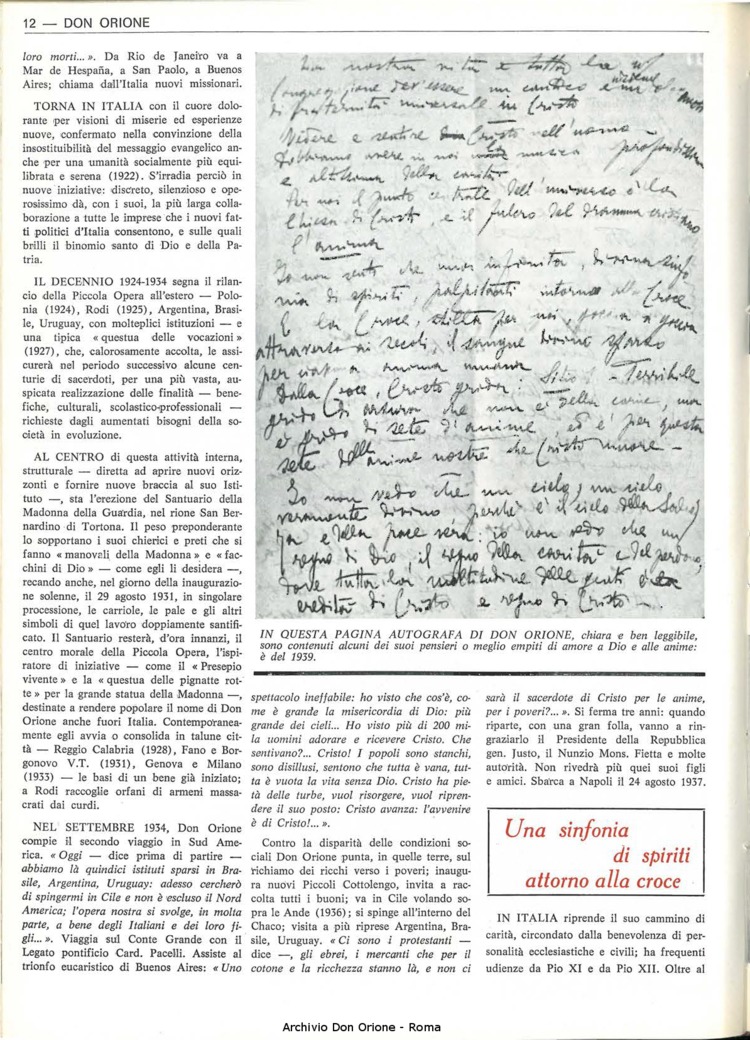 12 — DON ORIONE
loro morti... ». Da Rio de Janeiro va a
Mar de Hespaña, a San Paolo, a Buenos
Aires; chiama dall'Italia nuovi missionari.
TORNA IN ITALIA con il cuore dolo-
rante per visioni di miserie ed esperienze
nuove, confermato nella convinzione della
insostituibilità del messaggio evangelico an-
che per una umanità socialmente più equi-
librata e serena (1922). S'irradia perciò in
nuove iniziative: discreto, silenzioso e ope-
rosissimo dà, con i suoi, la più larga colla-
borazione a tutte le imprese che i nuovi fat-
ti politici d'Italia consentono, e sulle quali
brilli il binomio santo di Dio e della Pa-
tria.
IL DECENNIO 1924-1934 segna il rilan-
cio della Piccola Opera all'estero — Polo-
nia (1924), Rodi (1925), Argentina, Brasi-
le, Uruguay, con molteplici istituzioni — e
una tipica « questua delle vocazioni »
(1927), che, calorosamente accolta, le assi-
curerà nel periodo successivo alcune cen-
turie di sacerdoti, per una più vasta, au-
spicata realizzazione delle finalità — bene-
fiche, culturali, scolastico-professionali —
richieste dagli aumentati bisogni della so-
cietà in evoluzione.
AL CENTRO di questa attività interna,
strutturale — diretta ad aprire nuovi oriz-
zonti e fornire nuove braccia al suo Isti-
tuto —, sta l'erezione del Santuario della
Madonna della Guardia, nel rione San Ber-
nardino di Tortona. Il peso preponderante
lo sopportano i suoi chierici e preti che si
fanno « manovali della Madonna » e « fac-
chini di Dio » — come egli li desidera —,
recando anche, nel giorno della inaugurazio-
ne solenne, il 29 agosto 1931, in singolare
processione, le carriole, le pale e gli altri
simboli di quel lavoro doppiamente santifi-
cato. Il Santuario resterà, d'ora innanzi, il
centro morale della Piccola Opera, l'ispi-
ratore di iniziative — come il « Presepio
vivente » e la « questua delle pignatte rot-
te » per la grande statua della Madonna —,
destinate a rendere popolare il nome di Don
Orione anche fuori Italia. Contemporanea-
mente egli avvia o consolida in talune cit-
tà — Reggio Calabria (1928), Fano e Bor-
gonovo V.T. (1931), Genova e Milano
(1933) — le basi di un bene già iniziato;
a Rodi raccoglie orfani di armeni massa-
crati dai curdi.
NEL SETTEMBRE 1934, Don Orione
compie il secondo viaggio in Sud Ame-
rica. « Oggi — dice prima di partire —
abbiamo là quindici istituti sparsi in Bra-
sile, Argentina, Uruguay: adesso cercherò
di spingermi in Cile e non è escluso il Nord
America; l'opera nostra si svolge, in molta
parte, a bene degli Italiani e dei loro fi-
gli... ». Viaggia sul Conte Grande con il
Legato pontificio Card. Pacelli. Assiste al
trionfo eucaristico di Buenos Aires: « Uno
La nostra vita e tutta la
Congregazione dev'essere un cantico e
di fraternità universale in Cristo
Vedere e sentire Cristo nell'uomo —
Dobbiamo avere in noi musica profondissima
e altissima della carità
Per noi il punto centrale dell'universo è la
Chiesa di Cristo, e il fulcro del dramma cristiano
l'anima
Io non sento che una infinita, divina sinfo
nia di spiriti, palpitanti intorno alla Croce
E la Croce, stilla per noi, goccia a goccia
attraverso ai secoli, il sangue divino sparso
per anima umana
Dalla Croce, Cristo grida: Sitio! — Terribile
grido di arsura che non è della carne, ma
è grido di sete d'anime, ed è per questa
sete delle anime nostre che Cristo muore —
Io non vedo che un cielo, un cielo
veramente divino perchè è il cielo della Salvez
za e della pace vera: io non vedo che un
regno di Dio, il regno della carità e del perdono,
dove tutta la moltitudine delle genti è
eredità di Cristo e regno di Cristo —
IN QUESTA PAGINA AUTOGRAFA DI DON ORIONE, chiara e ben leggibile,
sono contenuti alcuni dei suoi pensieri o meglio empiti di amore a Dio e alle anime:
è del 1939.
spettacolo ineffabile: ho visto che cos'è, co-
me è grande la misericordia di Dio: più
grande dei cieli... Ho visto più di 200 mi-
la uomini adorare e ricevere Cristo. Che
sentivano?... Cristo! I popoli sono stanchi,
sono disillusi, sentono che tutta è vana, tut-
ta è vuota la vita senza Dio. Cristo ha pie-
tà delle turbe, vuol risorgere, vuol ripren-
dere il suo posto: Cristo avanza: l'avvenire
è di Cristo!... ».
Contro la disparità delle condizioni so-
ciali Don Orione punta, in quelle terre, sul
richiamo dei ricchi verso i poveri; inaugu-
ra nuovi Piccoli Cottolengo, invita a rac-
colta tutti i buoni; va in Cile volando so-
pra le Ande (1936); si spinge all'interno del
Chaco; visita a più riprese Argentina, Bra-
sile, Uruguay. « Ci sono i protestanti —
dice —, gli ebrei, i mercanti che per il
cotone e la ricchezza stanno là, e non ci
sarà il sacerdote di Cristo per le anime,
per i poveri?... ». Si ferma tre anni: quando
riparte, con una gran folla, vanno a rin-
graziarlo il Presidente della Repubblica
gen. Justo, il Nunzio Mons. Fietta e molte
autorità. Non rivedrà più quei suoi figli
e amici. Sbarca a Napoli il 24 agosto 1937.
Una sinfonia
di spiriti
attorno alla croce
IN ITALIA riprende il suo cammino di
carità, circondato dalla benevolenza di per-
sonalità ecclesiastiche e civili; ha frequenti
udienze da Pio XI e da Pio XII. Oltre al
Archivio Don Orione - Roma